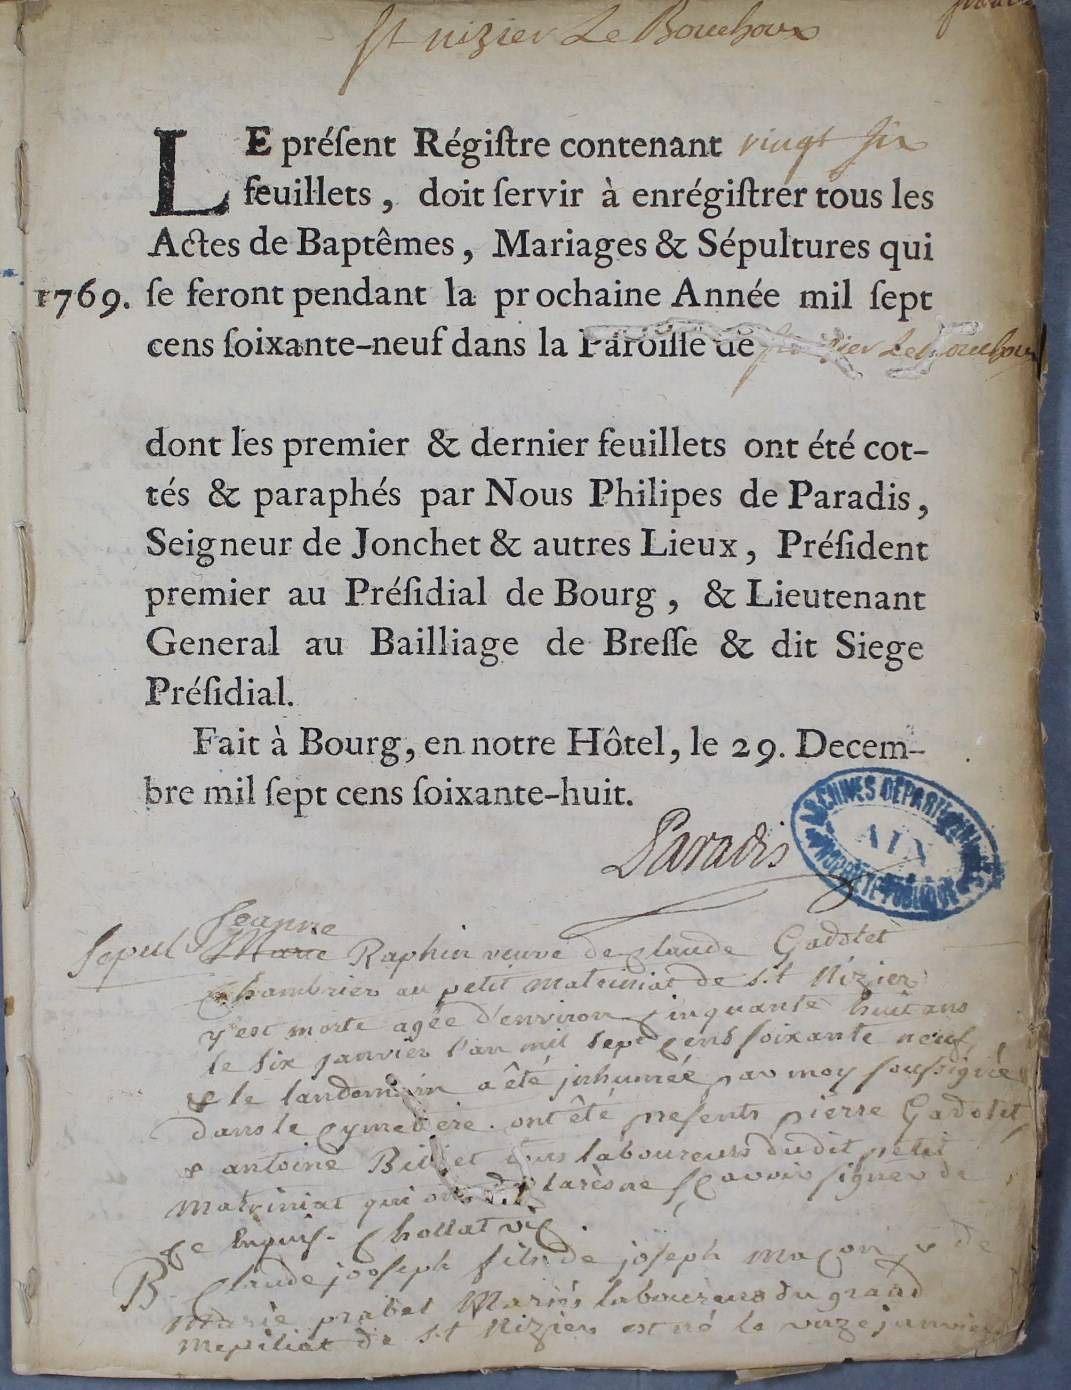 St nizier Le Bouchoux
LE préſent Régiſtre contenant vingt six
feuillets, doit ſervir à enrégiſtrer tous les
Actes de Baptêmes, Mariages & Sépultures qui
1769. ſe feront pendant la prochaine Année mil ſept
cens ſoixante-neuf dans la Paroiſſe de St nizier Le Bouchoux
dont les premier & dernier feuillets ont été cot-
tés & paraphés par Nous Philipes de Paradis,
Seigneur de Jonchet & autres Lieux, Préſident
premier au Préſidial de Bourg, & Lieutenant
General au Bailliage de Breſſe & dit Siege
Préſidial.
Fait à Bourg, en notre Hôtel, le 29. Decem-
bre mil ſept cens ſoixante-huit.
Paradis
ARCHIVES DEPARTEMENTALES
AIN
PROPRIETE PUBLIQUE
Jeanne
Sepul Marie Raphin veuve de Claude Gadolet
Chambrier au petit Matriniat de s.t Nizier
y est morte agée d'environ cinquante huit ans
le six janvier l'an mil sept cens soixante neuf
& le landemain a été jnhumée par moy soussigné
dans le cymetiere. ont été presents pierre Gadolet
& antoine Billet tous laboureurs dudit petit
Matriniat qui ont declarés ne sçavoir signer de
ce Enquis. Chollat vic.
B Claude joseph fils de joseph Maçon & de
Marie prabel Mariés laboureurs du grand
Mepiliat de s.t Nizier est né le onze janvier